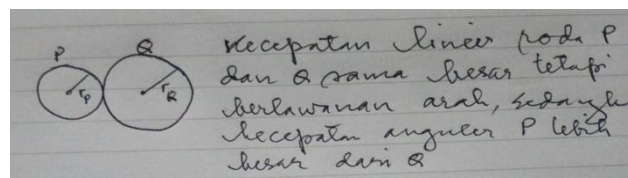 P
Q
rP
rQ
Kecepatan linier roda P
dan Q sama besar tetapi
berlawanan arah, sedangk
kecepatan anguler P lebih
besar dari Q